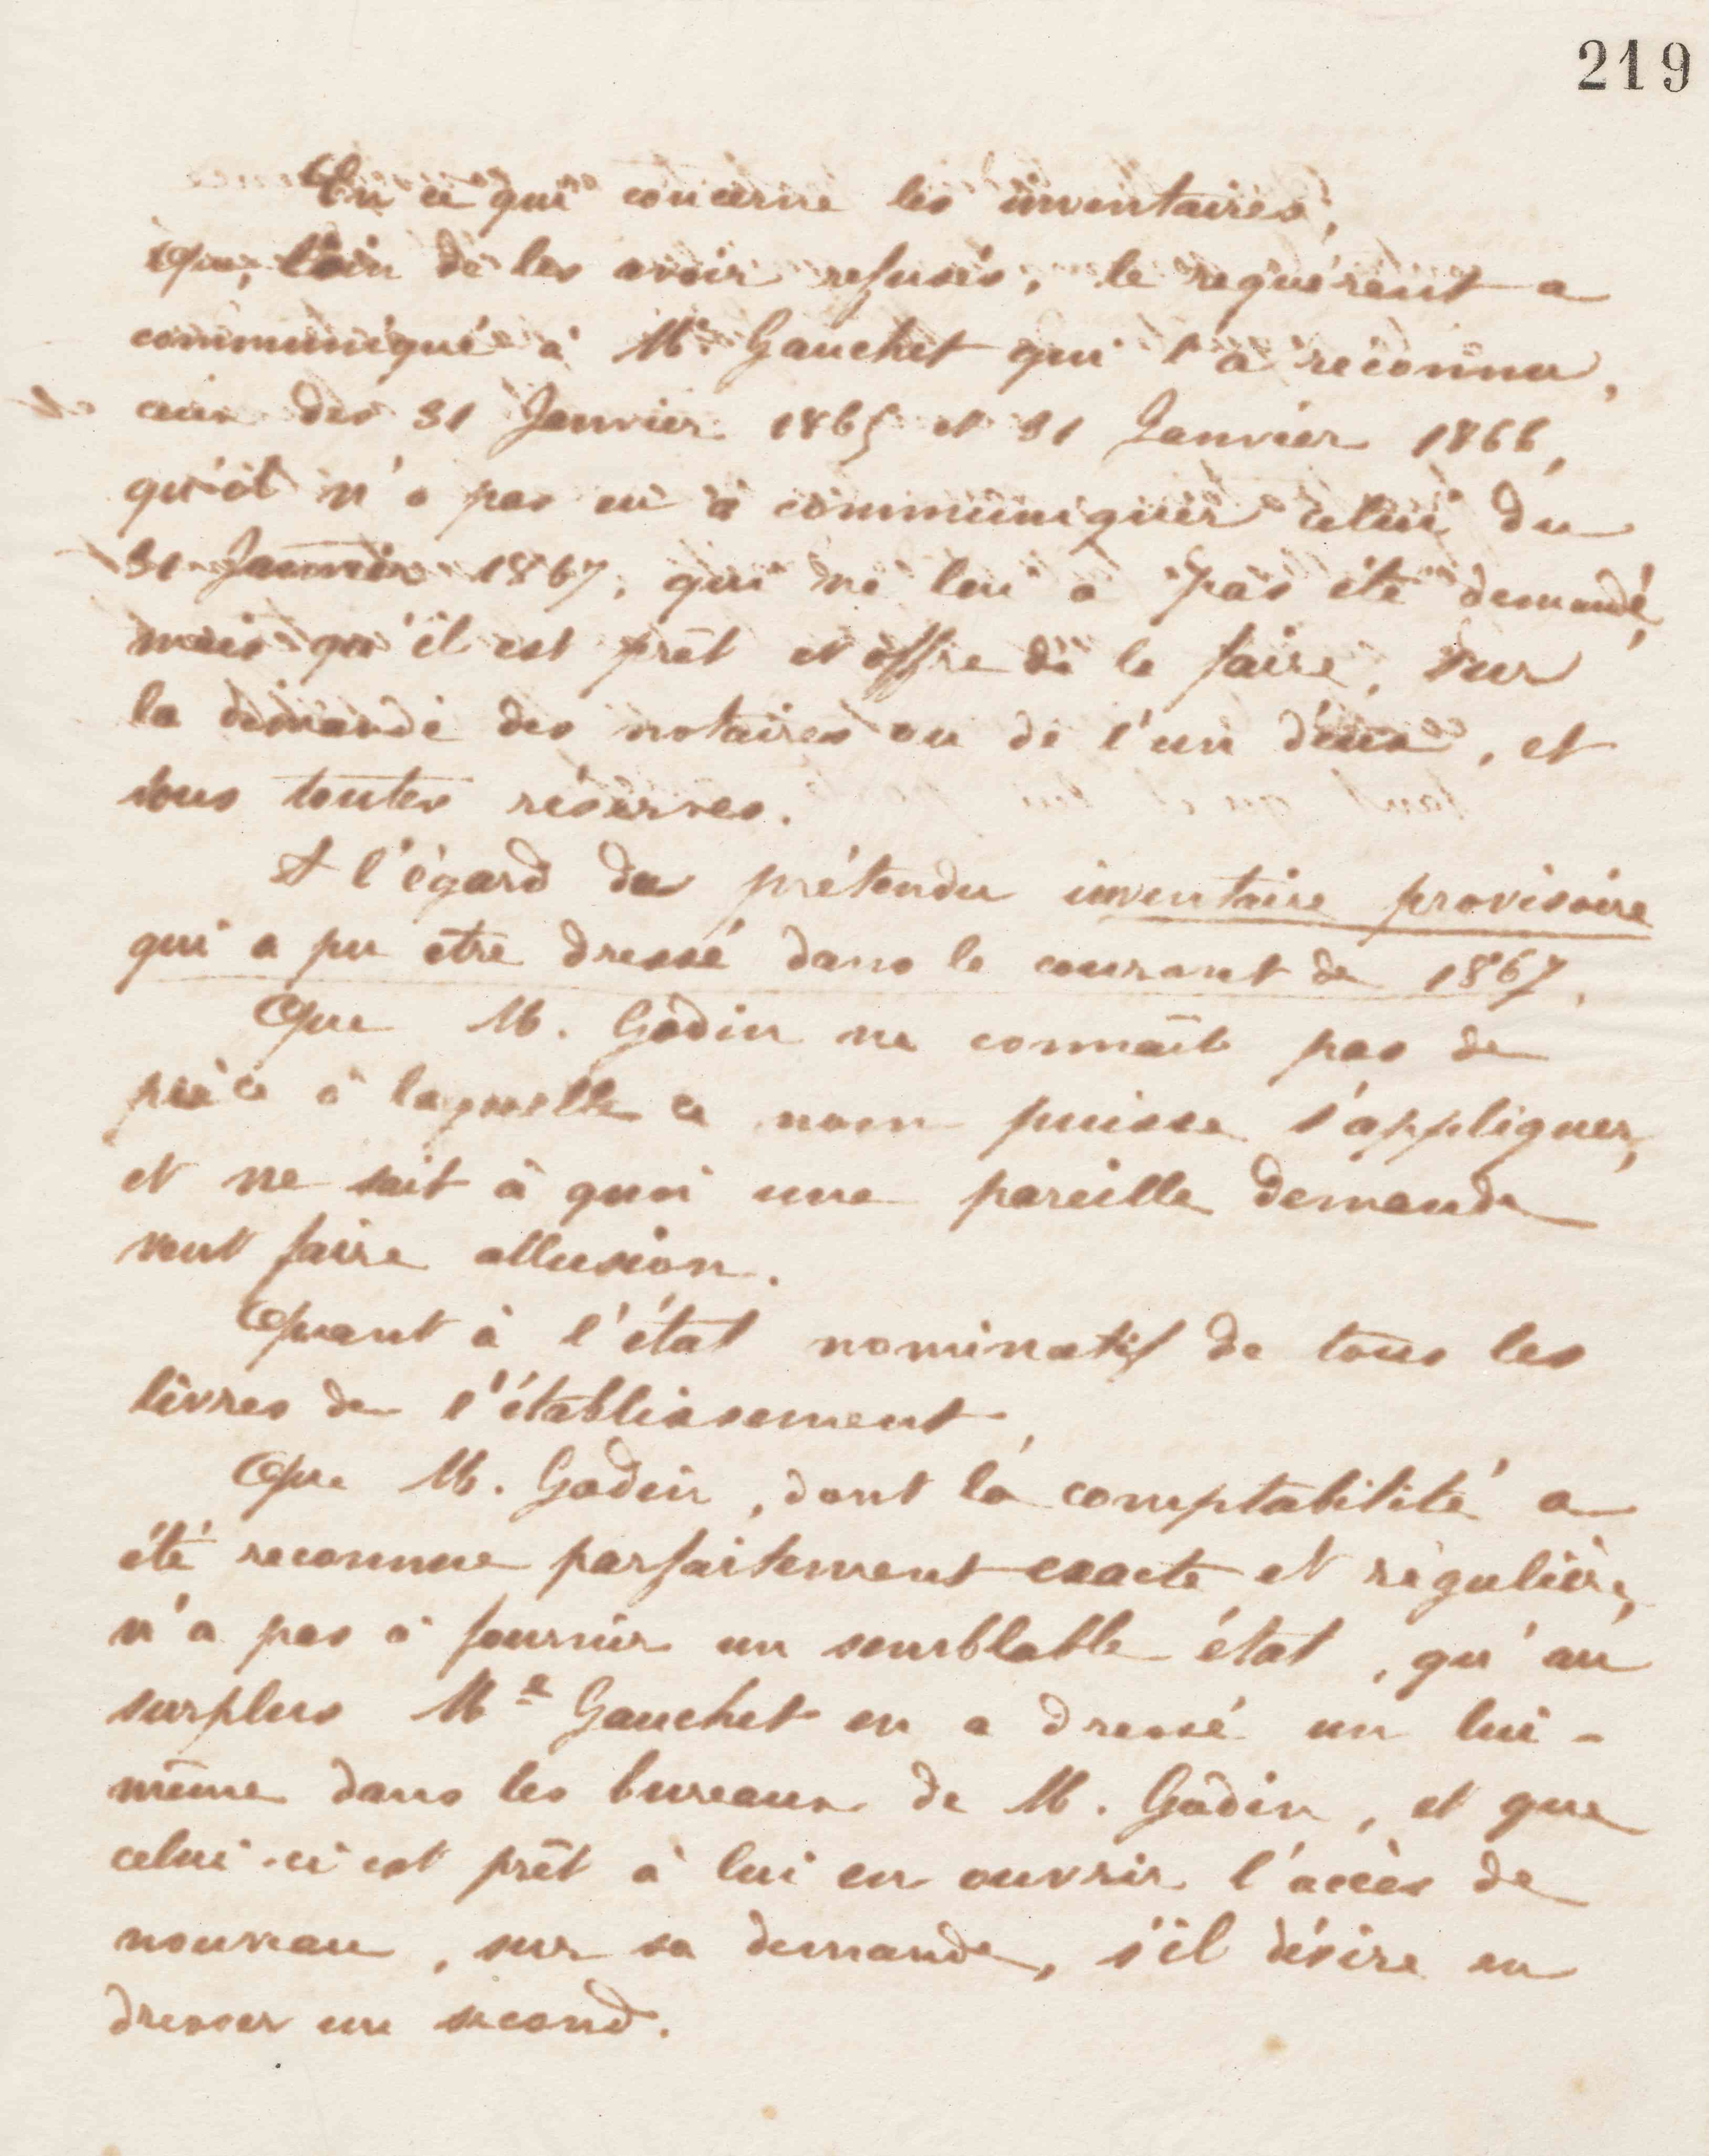 219
En ce qui concerne les inventaires,
Que, loin de les avoir refusés, le requérant a
communiqué à Me Gauchet qui l'a reconnu,
ceux des 31 Janvier 1865 et 31 Janvier 1866,
qu'il n'a pas eu à communiquer celui du
31 Janvier 1867, qui ne lui a pas été demandé,
mais qu'il est prêt et offre de le faire, sur
la demande des notaires ou de l'un d'eux, et
sous toutes réserves.
A l'égard du prétendu inventaire provisoire
qui a pu être dressé dans le courant de 1867,
Que M. Godin ne connaît pas de
pièce à laquelle ce nom puisse s'appliquer,
et ne sait à quoi une pareille demande
veut faire allusion.
Quant à l'état nominatif de tous les
livres de l'établissement,
Que M. Godin, dont la comptabilité a
été reconnue parfaitement exacte et régulière,
n'a pas à fournir un semblable état, qu'au
surplus Me Gauchet en a dressé un lui-
même dans les bureaux de M. Godin, et que
celui-ci est prêt à lui en ouvrir l'accès de
nouveau, sur sa demande, s'il désire en
dresser un second.